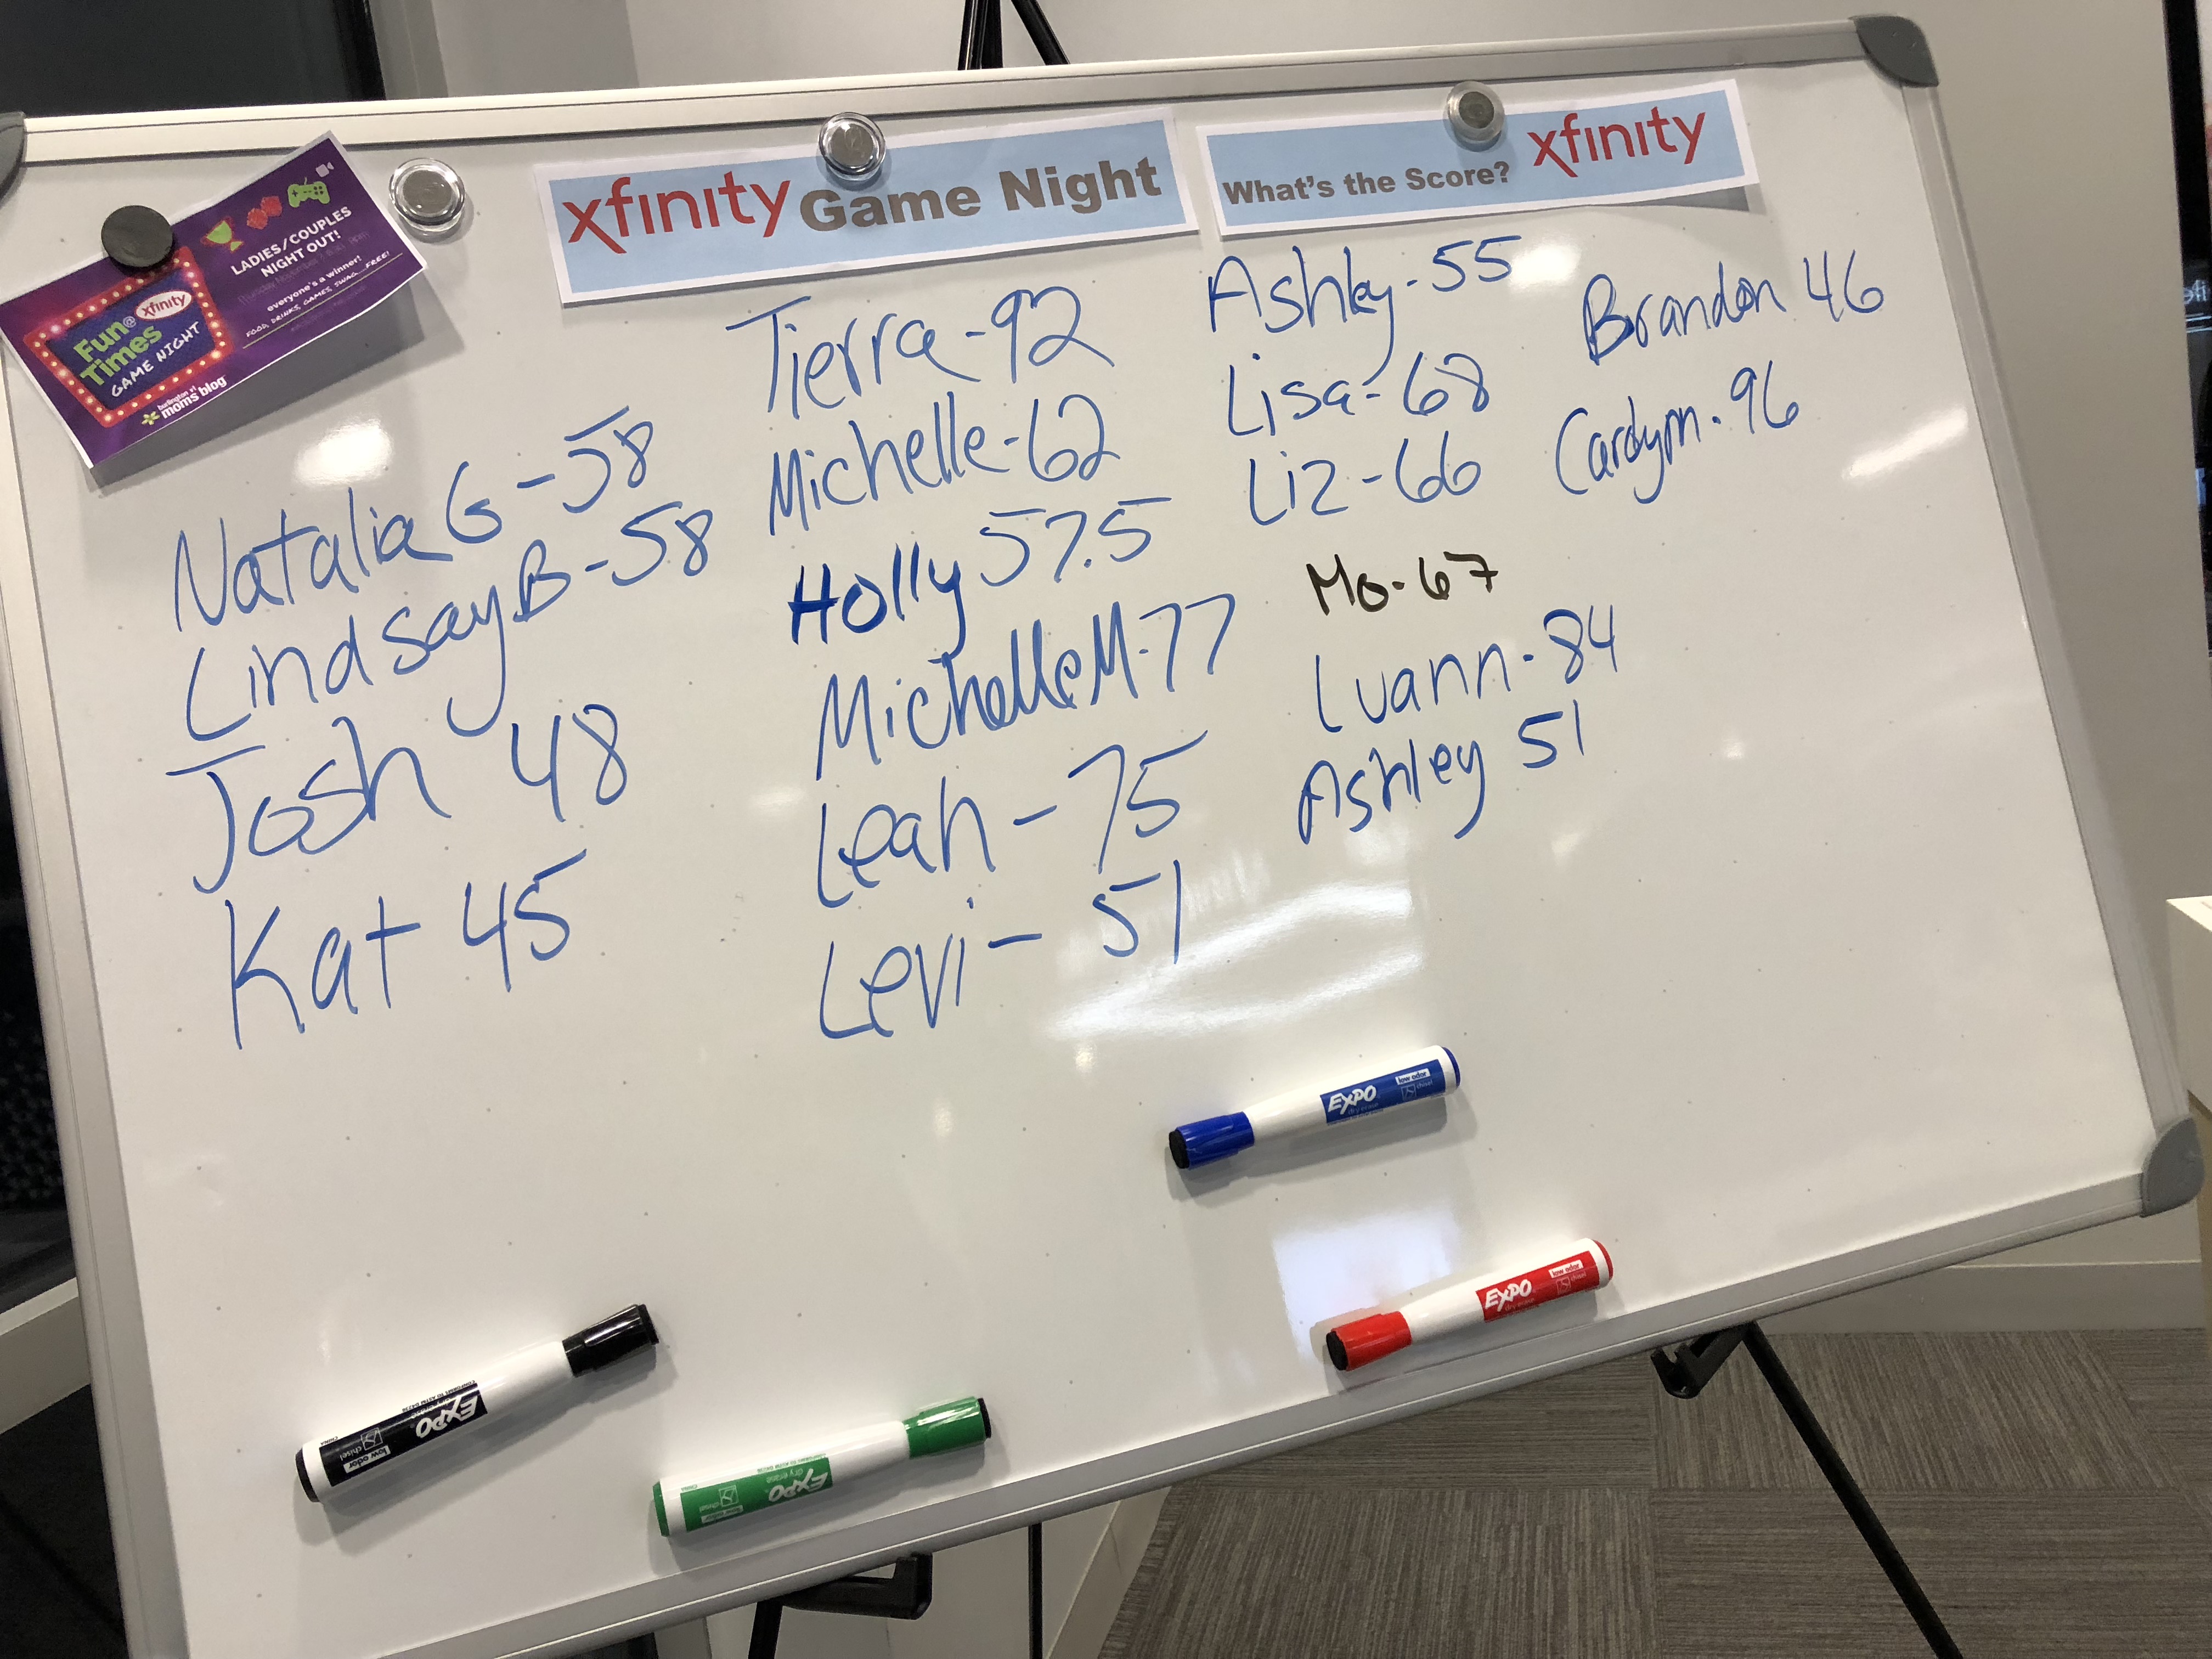 xfinity Game Night
What's the Score? xfinity
LADIES/COUPLES
NIGHT OUT!
everyone's a winner!
FOOD, DRINKS, GAMES, SWAG...FREE!
Fun @ xfinity
Times
GAME NIGHT
burlington
moms blog
Natalia G - 58
Lindsay B - 58
Josh 48
Kat 45
Tierra - 92
Michelle - 62
Holly 57.5
Michelle M - 77
Leah - 75
Levi - 51
Ashley - 55
Lisa - 68
Liz - 66
Mo - 67
Luann - 84
Ashley 51
Brandon 46
96
EXPO
low odor
chisel
dry erase
EXPO
low odor
chisel
dry erase
EXPO
low odor
chisel
EXPO
dry erase
chisel